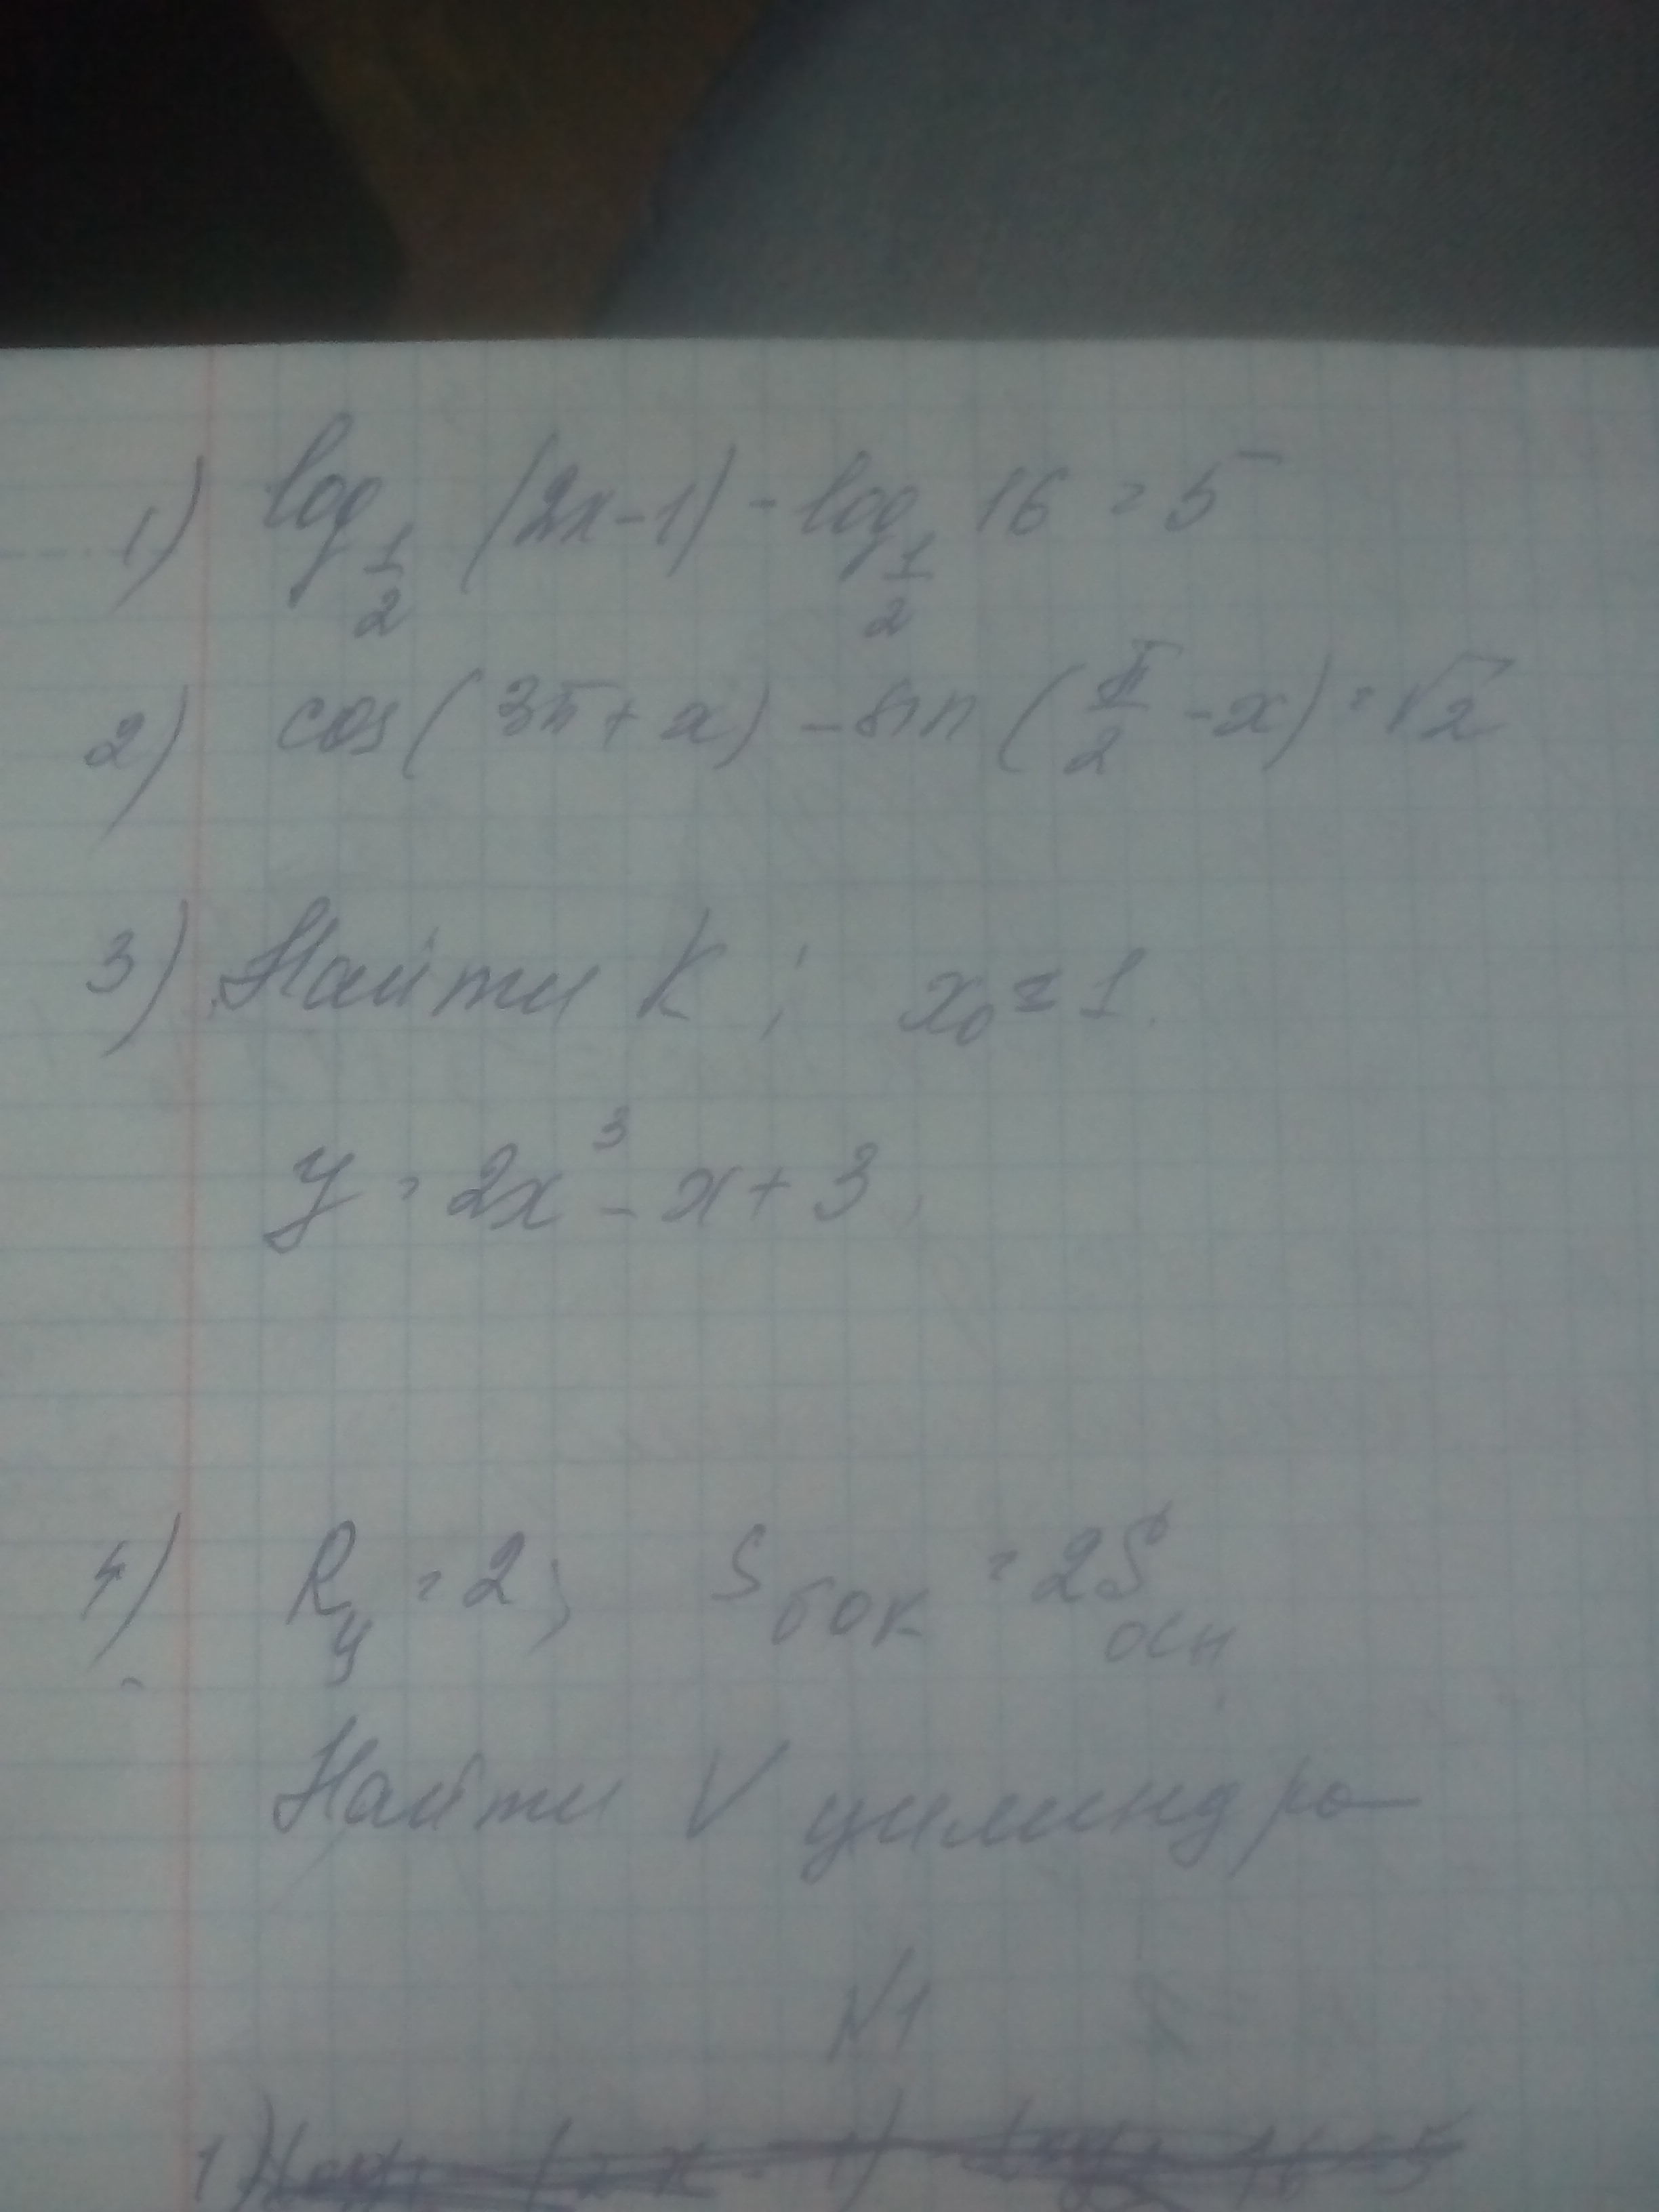 1) log 1/2 (2x-1) - log 1/2 16 = 5
2) cos(3π + x) - sin(π/2 - x) = √2
3) Найти K ; x₀ = 1.
y = 2x³ - x + 3
4) Rц = 2; Sбок = 2Sосн
Найти V цилиндра
N1